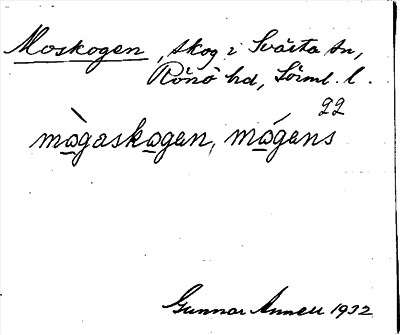 Moskogen, skog i Svärta sn,
Rönö hd, Sörml. l.
22
mògaskogen, mógens
Gunnar Annell 1932